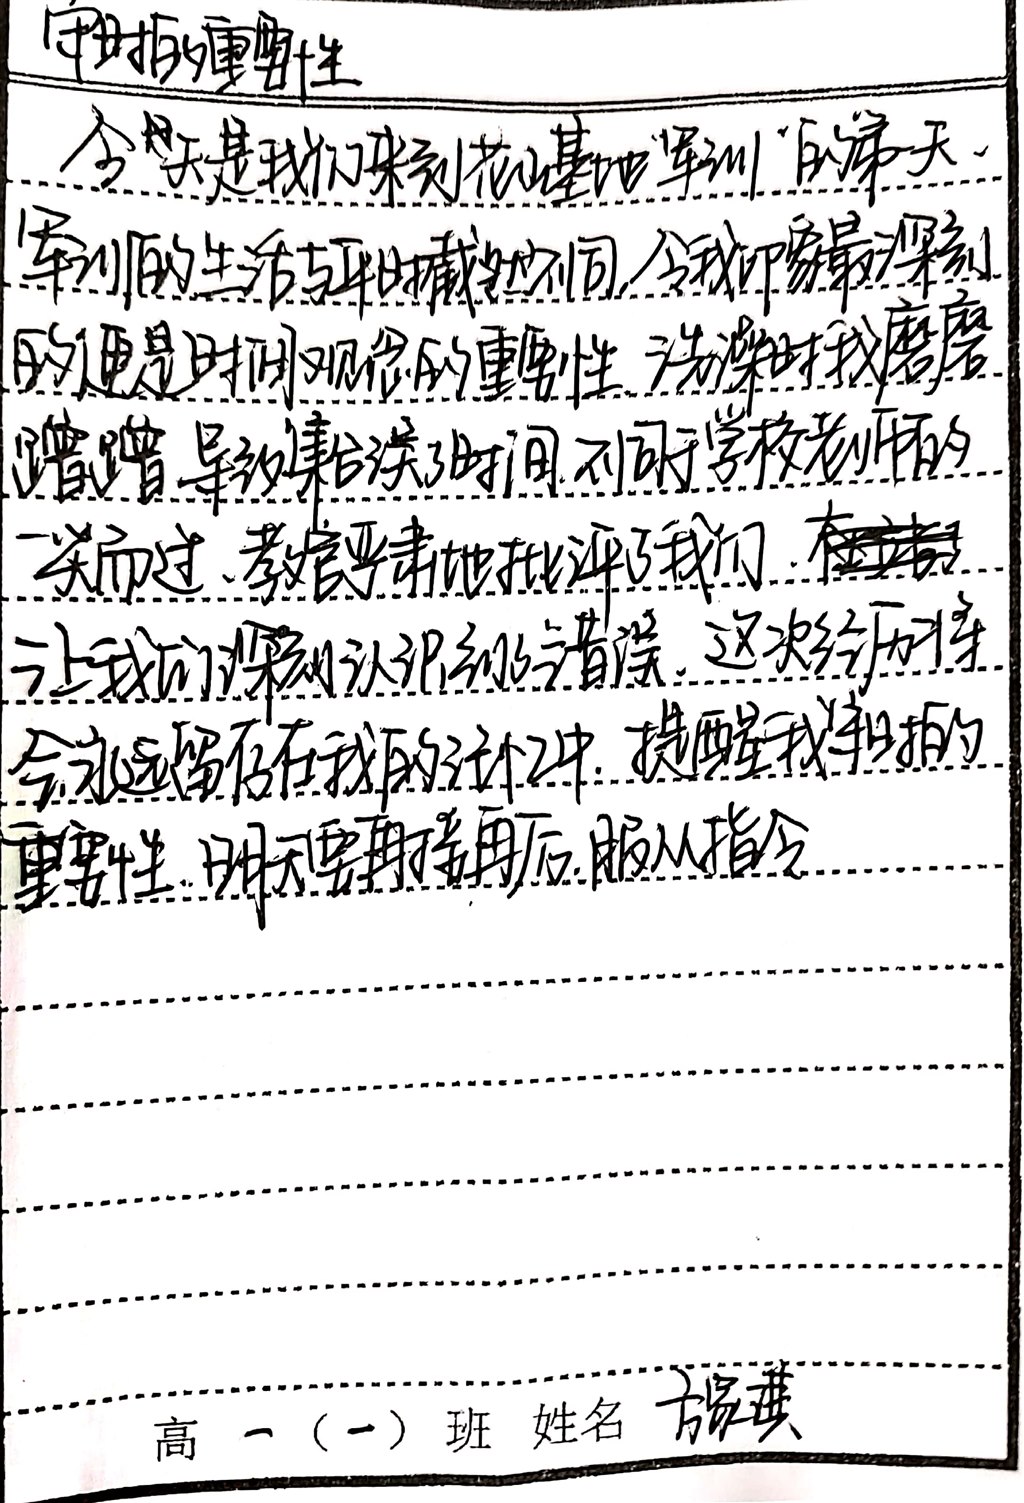 守时的重要性
今天是我们来到花山基地"军训"的第一天、
军训的生活与平时截然不同,令我印象最深刻
的便是时间观念的重要性、洗澡时我磨磨
蹭蹭、导致集合误了时间、不同于学校老师的
一笑而过、教官严肃地批评了我们、
让我们深刻认识到了错误、这次经历将
会永远留存在我的记忆中、提醒我守时的
重要性、明天要再接再厉、服从指令
高一(一)班 姓名 方家